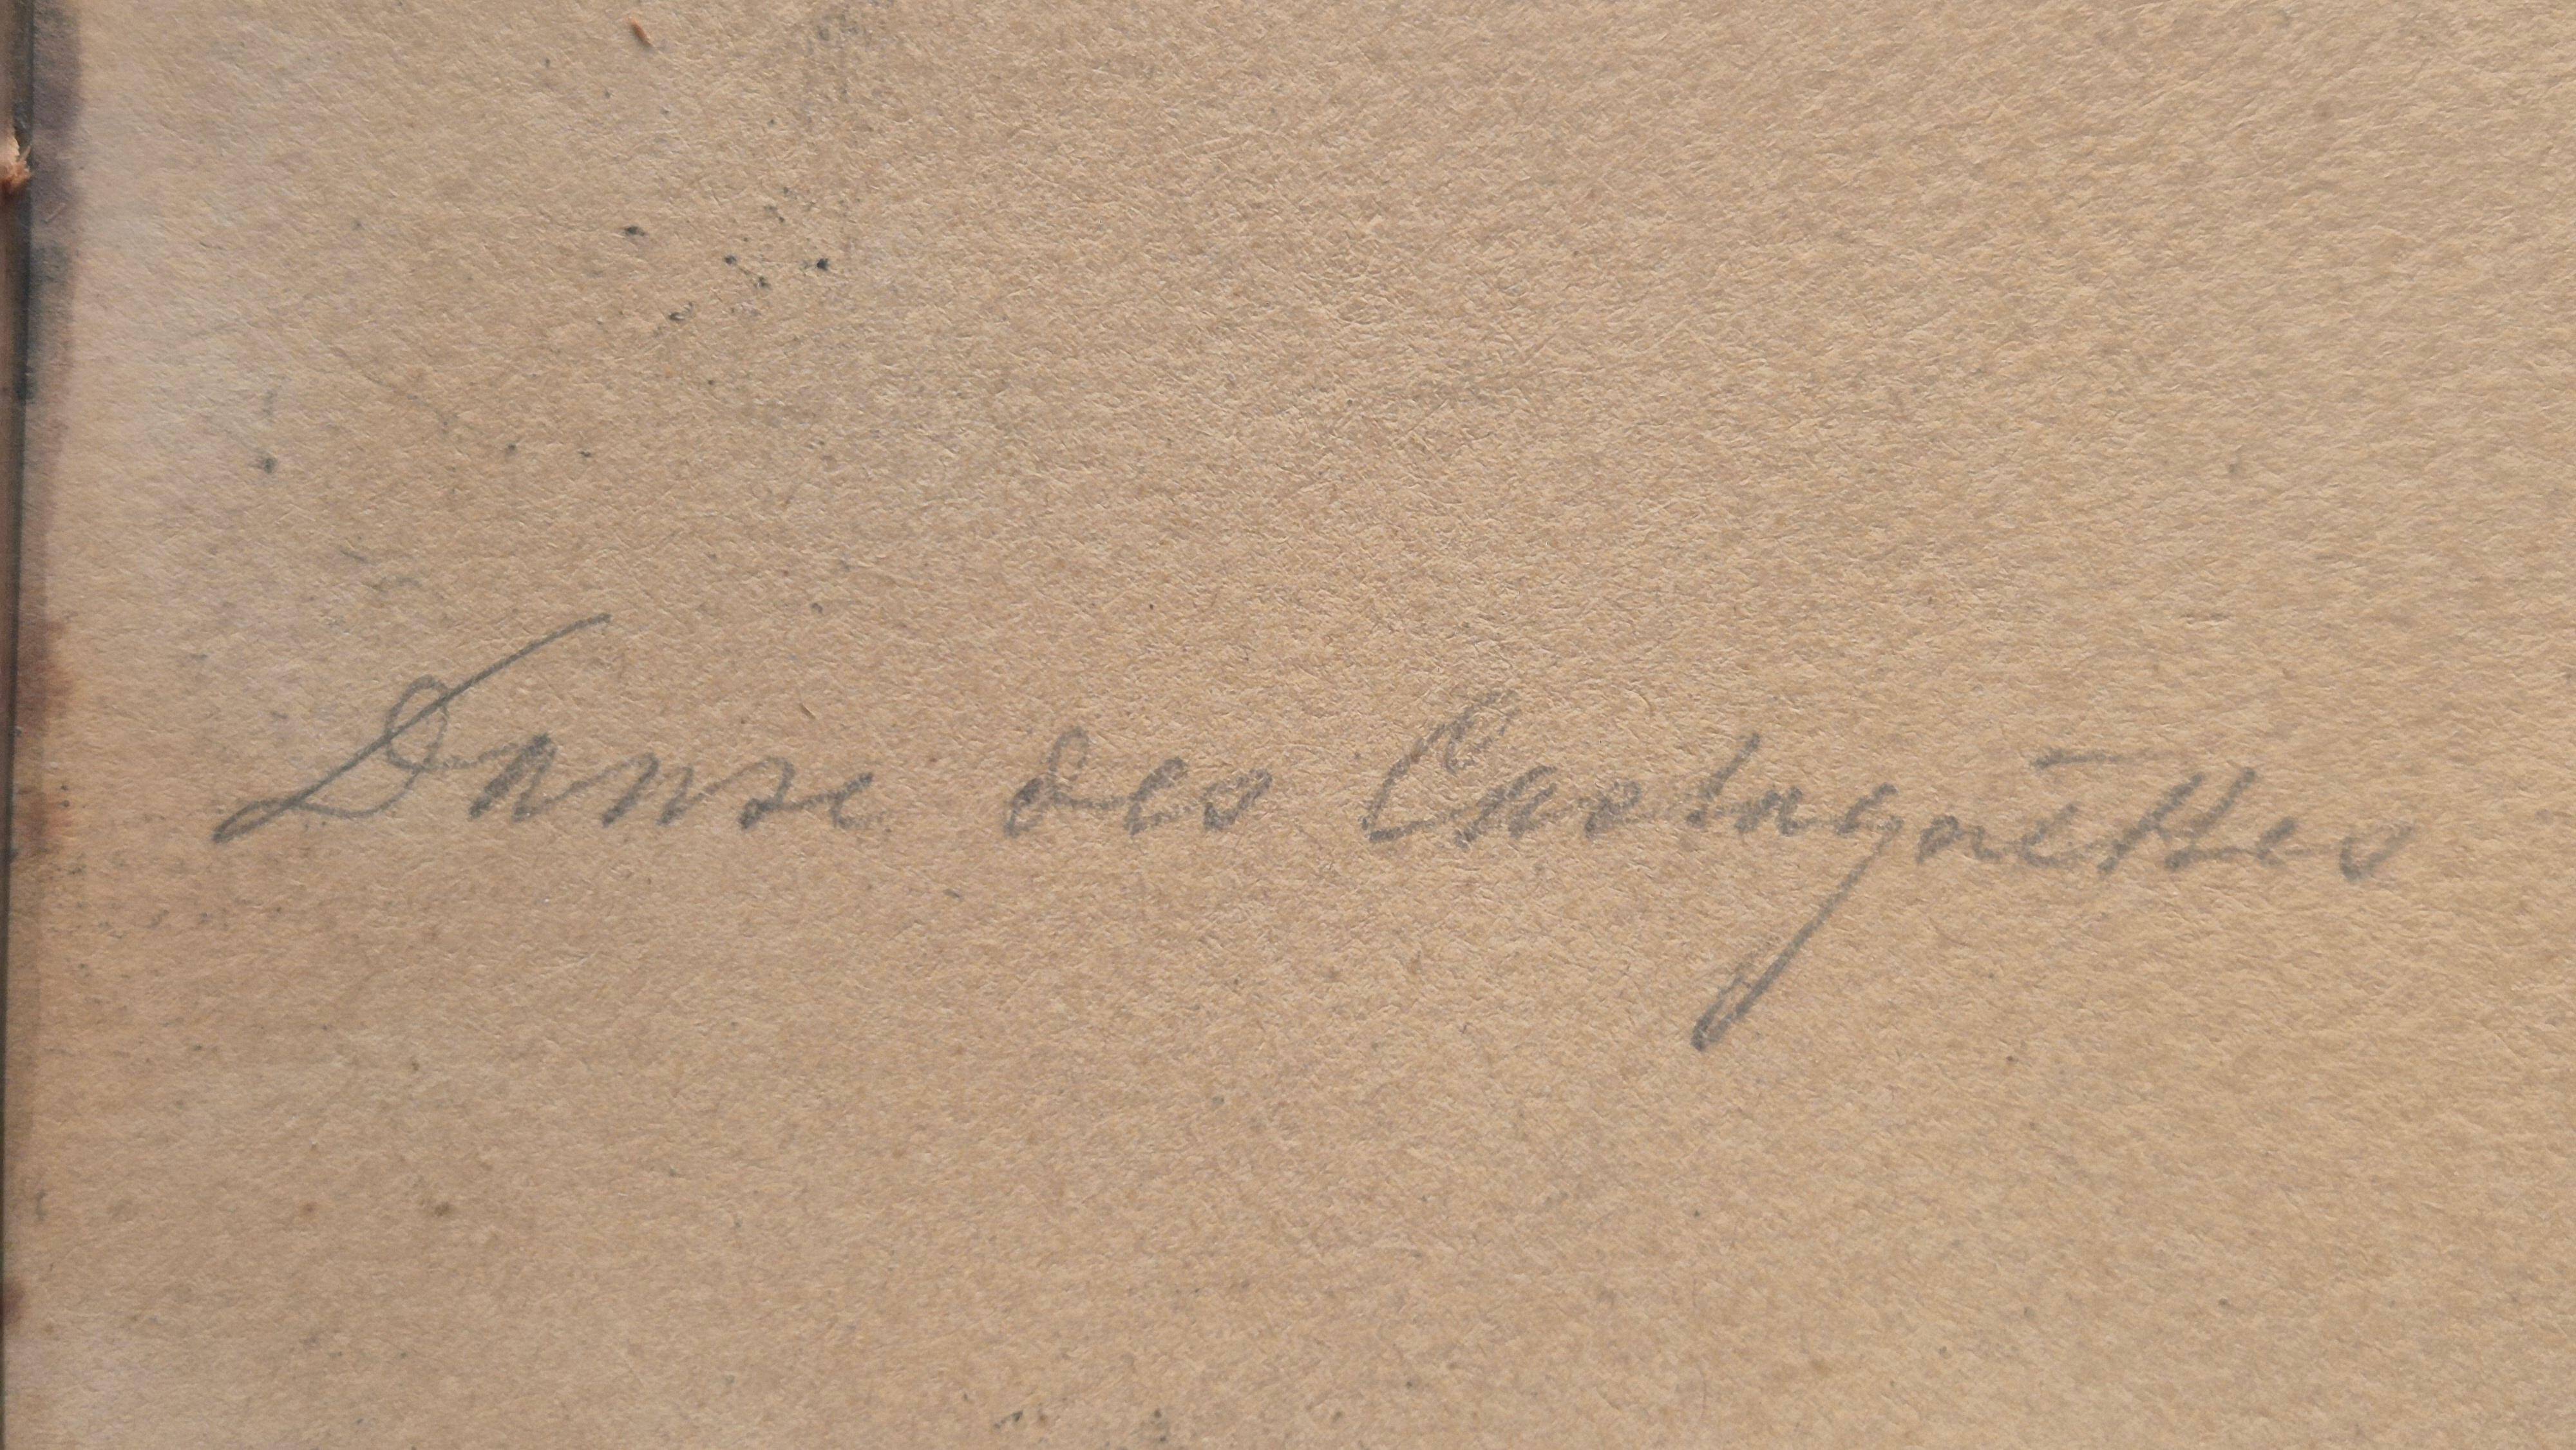 Danse des Castagnettes